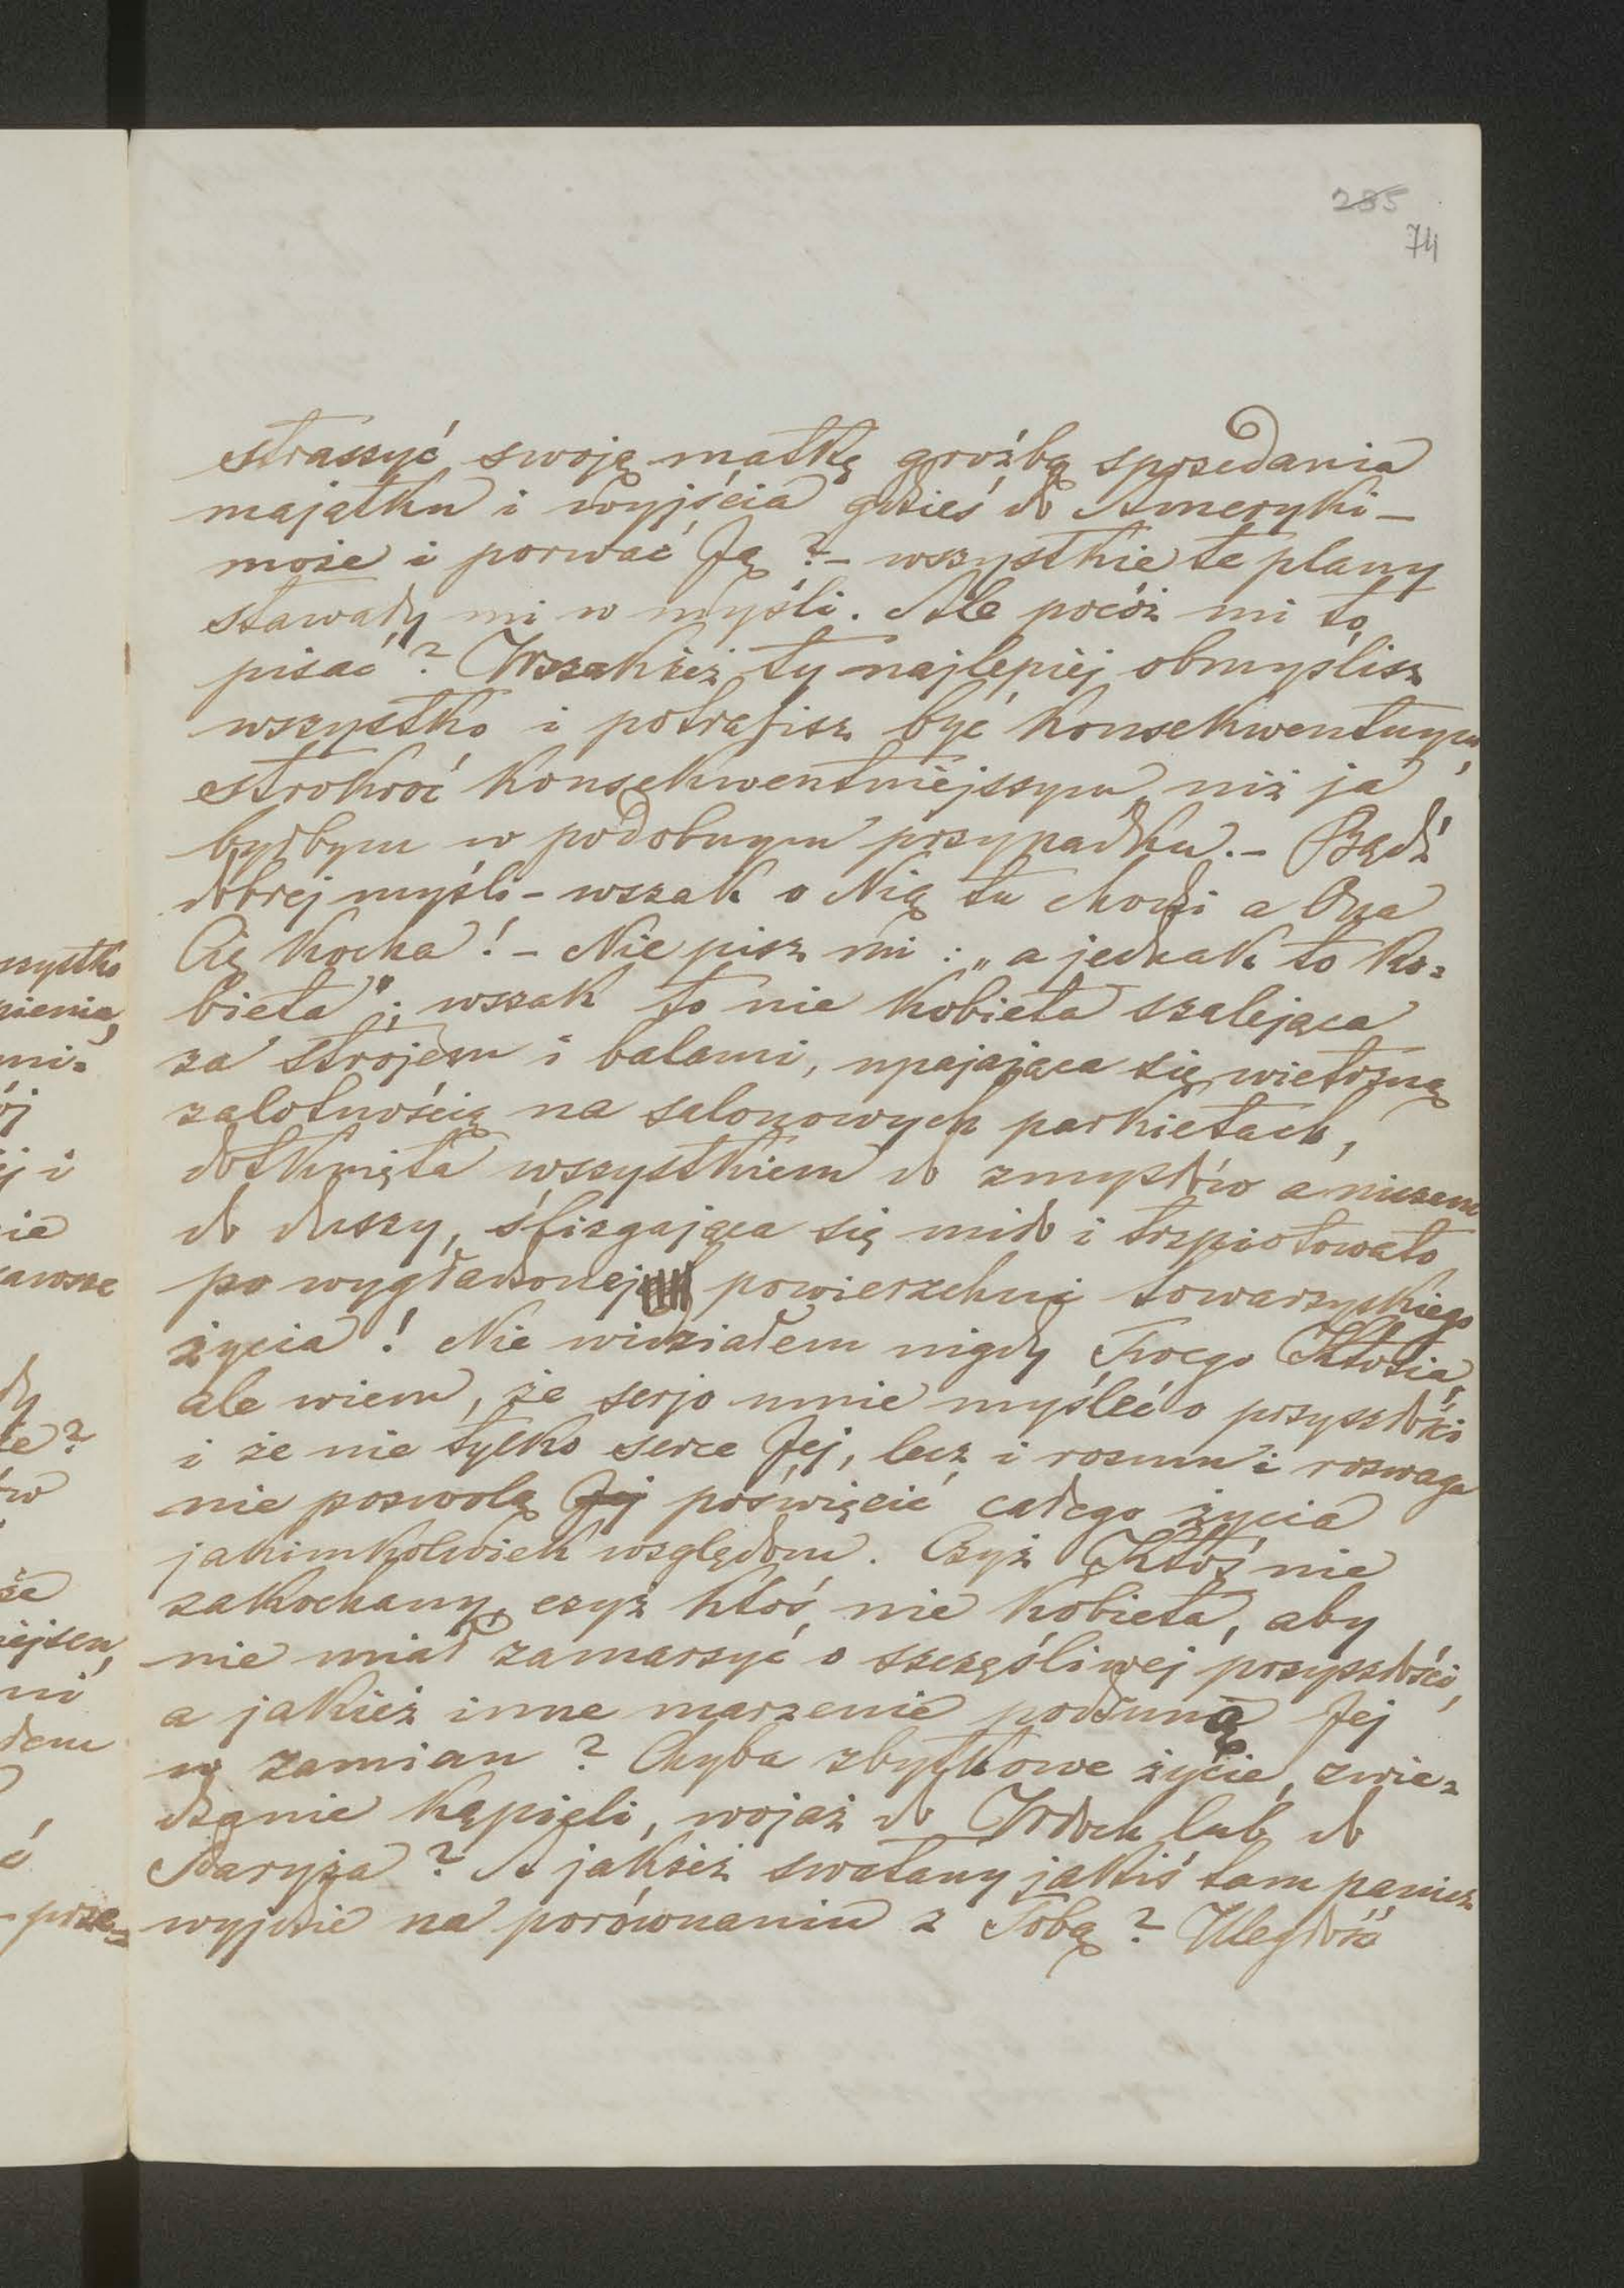 285
74
straszyć swoję matkę groźbą sprzedania
majątku i wyjścia gdzieś do Ameryki –
może i porwać Ją? – wszystkie te plany
stawały mi w myśli. Ale pocóż mi to
pisać? Wszakżeż ty najlepiej obmyślisz
wszystko i potrafisz być konsekwentnym,
stokroć konsekwentniejszym, niż ja
byłbym w podobnym przypadku. – Bądź
dobrej myśli – wszak o Nią tu chodzi a Ona
Cię kocha! – Nie pisz mi: „a jednak to ko=
bieta"; wszak to nie kobieta szalejąca
za strojem i balami, upajająca się wietrzną
zalotnością na salonowych parkietach,
dotknięta wszystkiem do zmysłów a niczem
do duszy, ślizgająca się miło i trzpiotowato
po wygładzonej powierzchni towarzyskiego
życia! Nie widziałem nigdy Twego Ktosia,
ale wiem, że serjo umie myśleć o przyszłości
i że nie tylko serce Jej, lecz i rozum i rozwaga
nie pozwolą Jej poświęcić całego życia
jakimkolwiek względom. Czyż Ktoś nie
zakochany, czyż ktoś nie kobieta, aby
nie miał zamarzyć o szczęśliwej przyszłości,
a jakież inne marzenie podsuną Jej
w zamian? Chyba zbytkowe życie, zwie=
dzanie kąpieli, wojaż do Włoch lub do
Paryża? A jakżeż swatany jakiś tam panicz
wyjdzie na porównaniu z Tobą? Uległość
szystko
pienia,
mi=
ój
ej i
nie
zawsze
dy
te?
ów
że
iejsen,
ni
dem
ć
– prze=